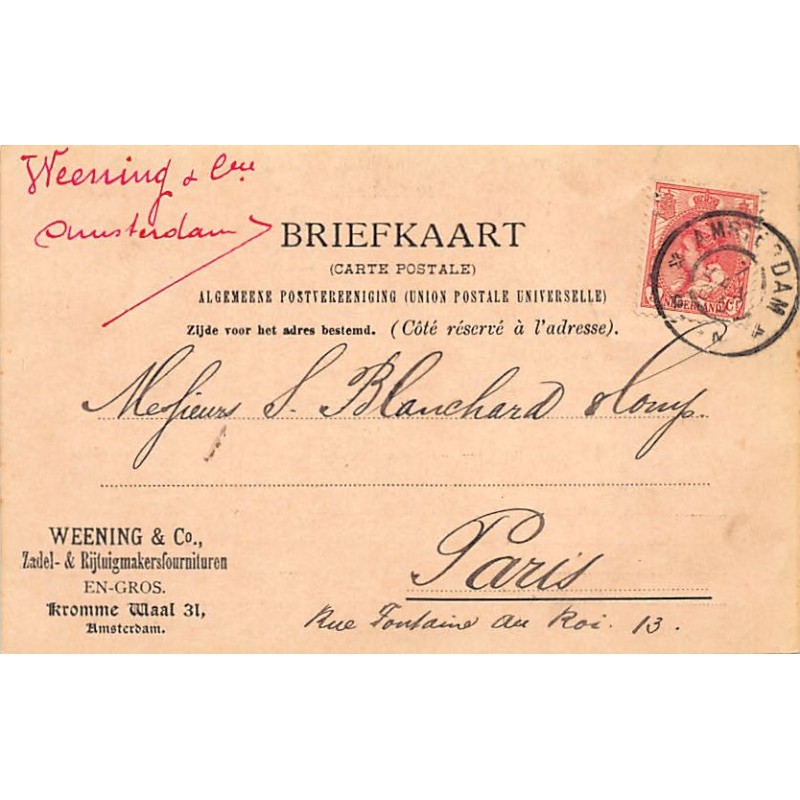 Weening & Cie
Amsterdam
BRIEFKAART
(CARTE POSTALE)
ALGEMEENE POSTVEREENIGING (UNION POSTALE UNIVERSELLE)
Zijde voor het adres bestemd. (Côté réservé à l'adresse).
NEDERLAND
AMSTERDAM
Messieurs S. Blanchard & Comp.
Paris
Rue Fontaine au Roi. 13.
WEENING & Co.,
Zadel- & Rijtuigmakersfournituren
EN-GROS.
Kromme Waal 31,
Amsterdam.